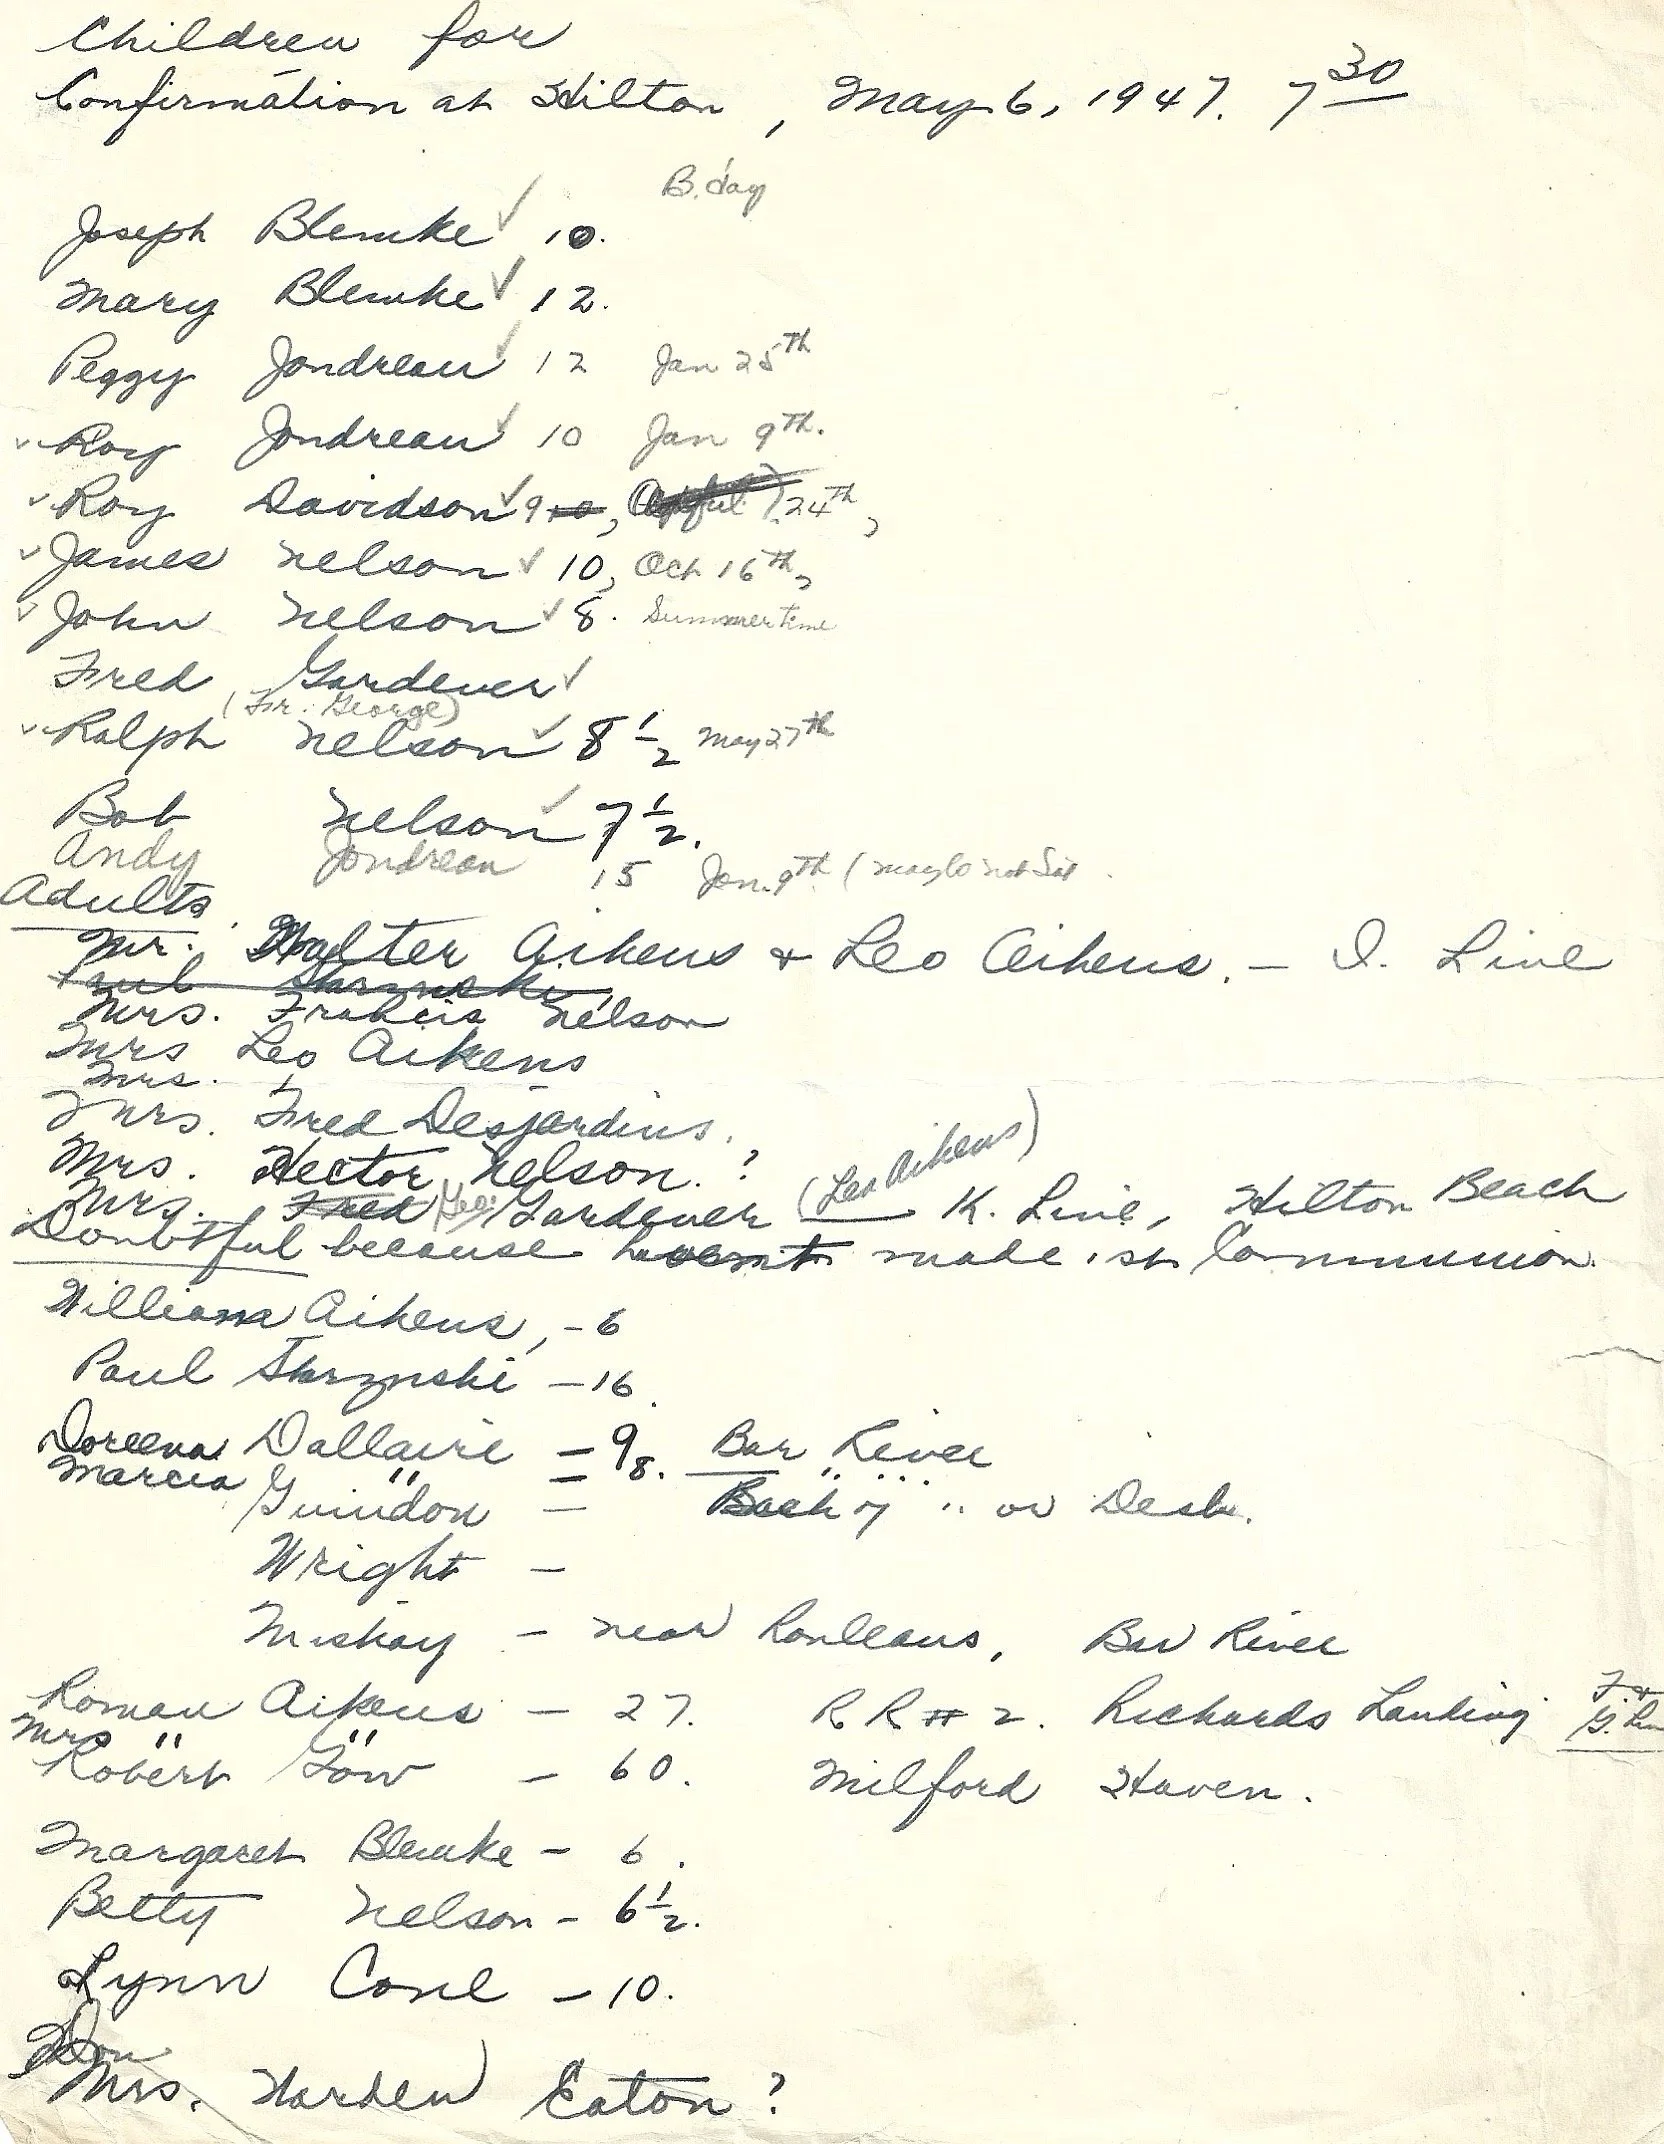 Children for
Confirmation at Hilton, May 6, 1947. 7 30
B. day
Joseph Blemke ✓ 10.
Mary Blemke ✓ 12.
Peggy Jondreau ✓ 12 Jan 25th
✓ Roy Jondreau ✓ 10 Jan 9th.
✓ Roy Davidson ✓ 9 10, 24th,
✓ James Nelson ✓ 10, Oct 16th,
✓ John Nelson ✓ 8. Summertime
Fred Gardener ✓
(Fr. George)
✓ Ralph Nelson ✓ 8 1/2 May 27th
Bob Nelson ✓ 7 1/2.
Andy Jondreau 15 Jan. 9th (maybe not
Adults.
Mr. Walter Aikens & Leo Aikens. – D. Line
Paul
Mrs. Francis Nelson
Mrs Leo Aikens
Mrs.
Mrs. Fred Desjardins.
Mrs. Hector Nelson. ?
Mrs. Fred Geo. Gardener (Leo Aikens) K. Line, Hilton Beach
Doubtful because haven't made 1st Communion.
William Aikens, – 6
Paul Skrzynski – 16.
Doreena Dallaire – 9 Bar River
Marcia " – 8. " "
Guindon – " or Desb.
Wright –
Miskay – near Rouleaus, Bar River
Roman Aikens – 27. R R # 2. Richards Landing F. &
Mrs " "
Robert Gow – 60. Milford Haven.
Margaret Blemke – 6.
Betty Nelson – 6 1/2.
Lynn Cone – 10.
Don
Mrs. Harden) Eaton ?